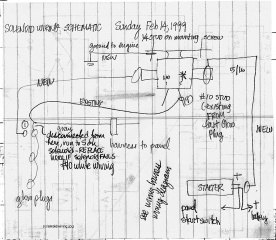 SOLENOID WIRING SCHEMATIC
Sunday Feb 14, 1999
STUD ON mounting screw
ground to engine
NEW
NEW
EXISTING
15/16
#10 STUD
EXISTING
FROM
Plug
NEW
gray
disconnected from
here, run to
solenoid - REPLACE
WIRE IF SOLENOID FAILS
#10 white wiring
harness to panel
glow plugs
see wiring harness
wiring diagram
STARTER
panel
start switch
battery